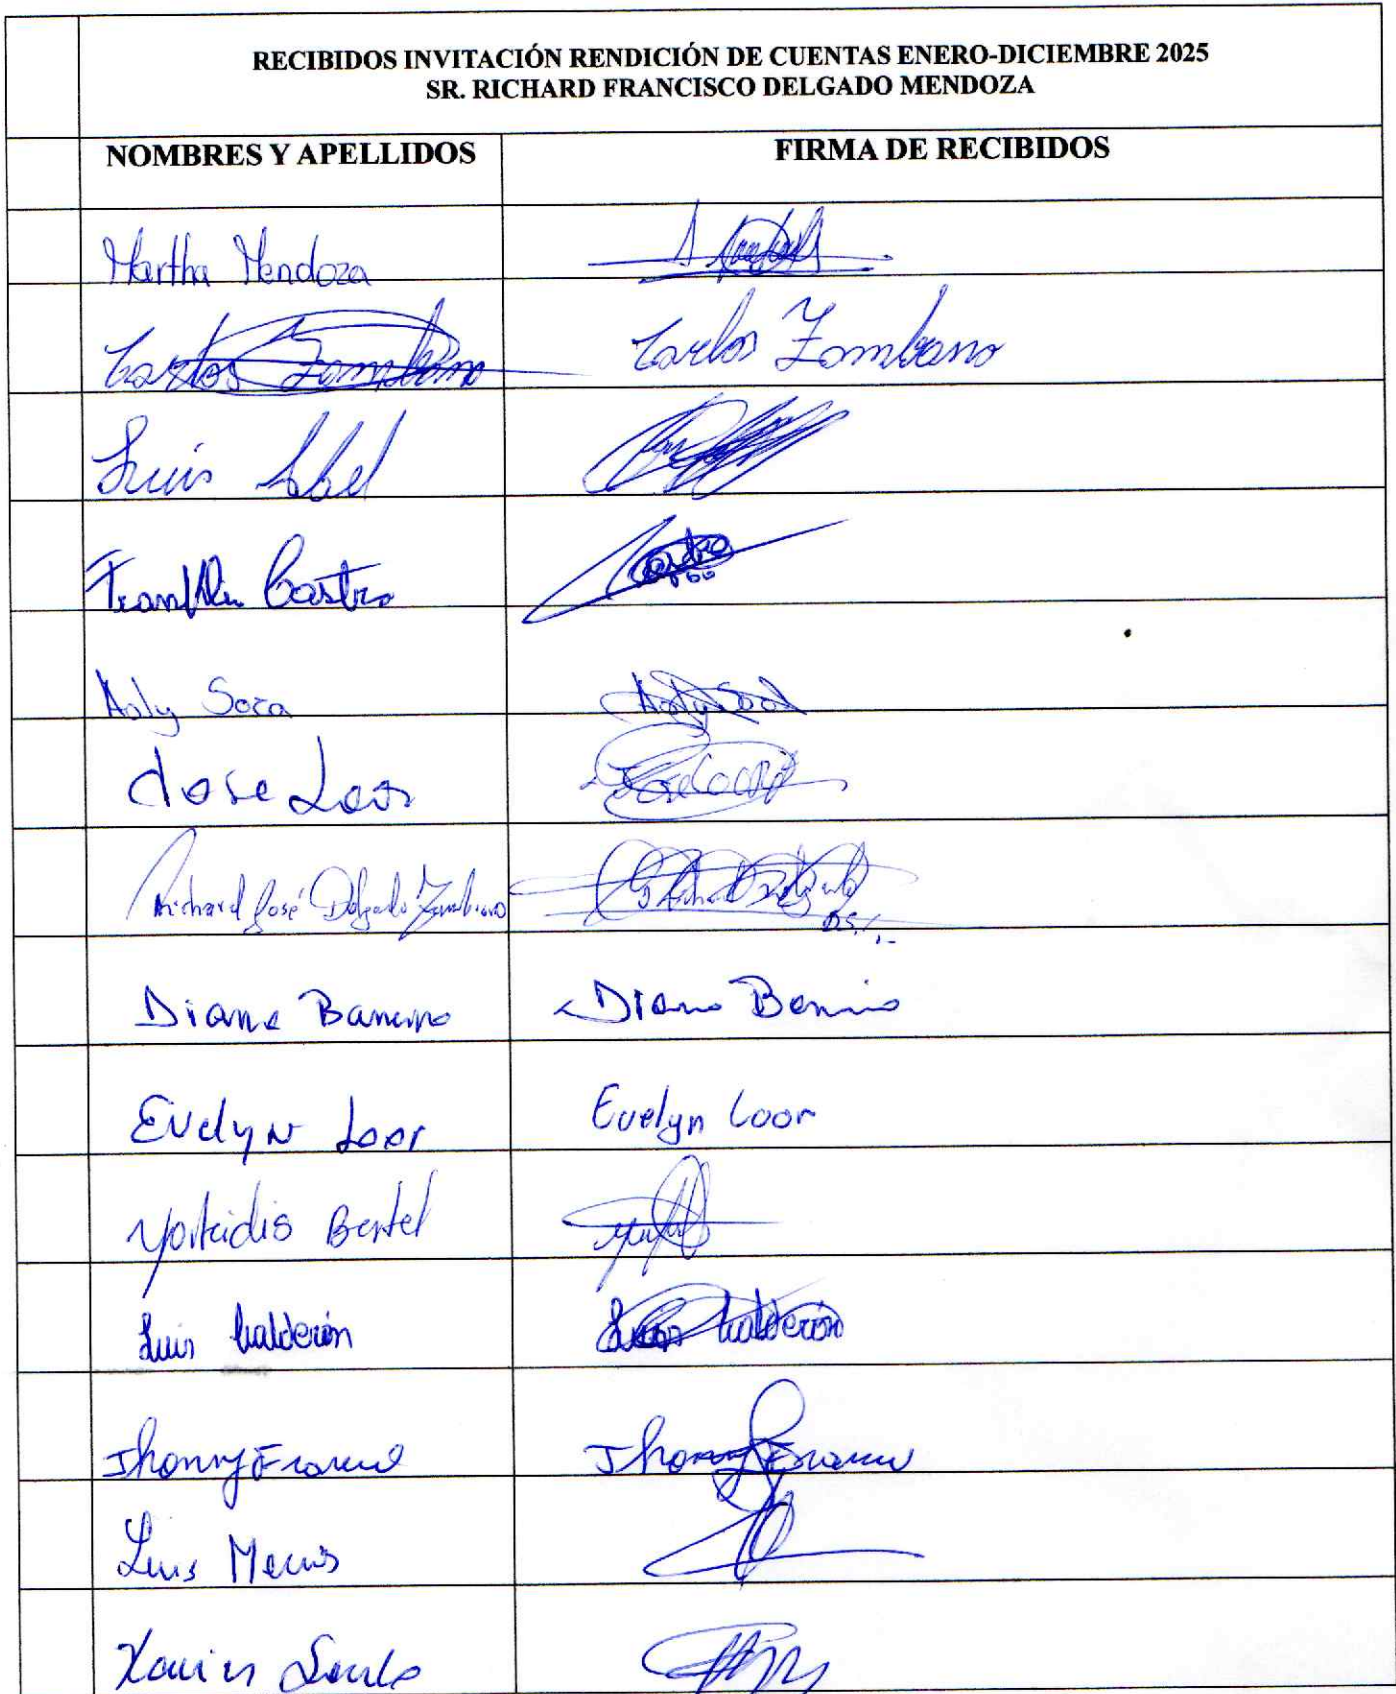 RECIBIDOS INVITACIÓN RENDICIÓN DE CUENTAS ENERO-DICIEMBRE 2025
SR. RICHARD FRANCISCO DELGADO MENDOZA
NOMBRES Y APELLIDOS FIRMA DE RECIBIDOS
Martha Mendoza
Carlos Zambrano Carlos Zambrano
Luis Abel
Franklin Castro
Soza
Jose Loor
Richard José Delgado Zambrano
Diana
Evelyn Loor Evelyn Loor
Bertel
Luis Calderón Luis Calderón
Jhonny Franco Jhonny Franco
Luis
Xavier